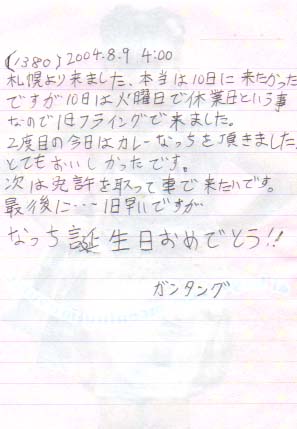 (1380) 2004.8.9 4:00
札幌より来ました、本当は10日に来たかった
ですが10日は火曜日で休業日という事
なので1日フライングで来ました。
2度目の今日はカレーなっちを頂きました
とてもおいしかったです。
次は免許を取って車で来たいです。
最後に…1日早いですが
なっち誕生日おめでとう!!
ガンタング